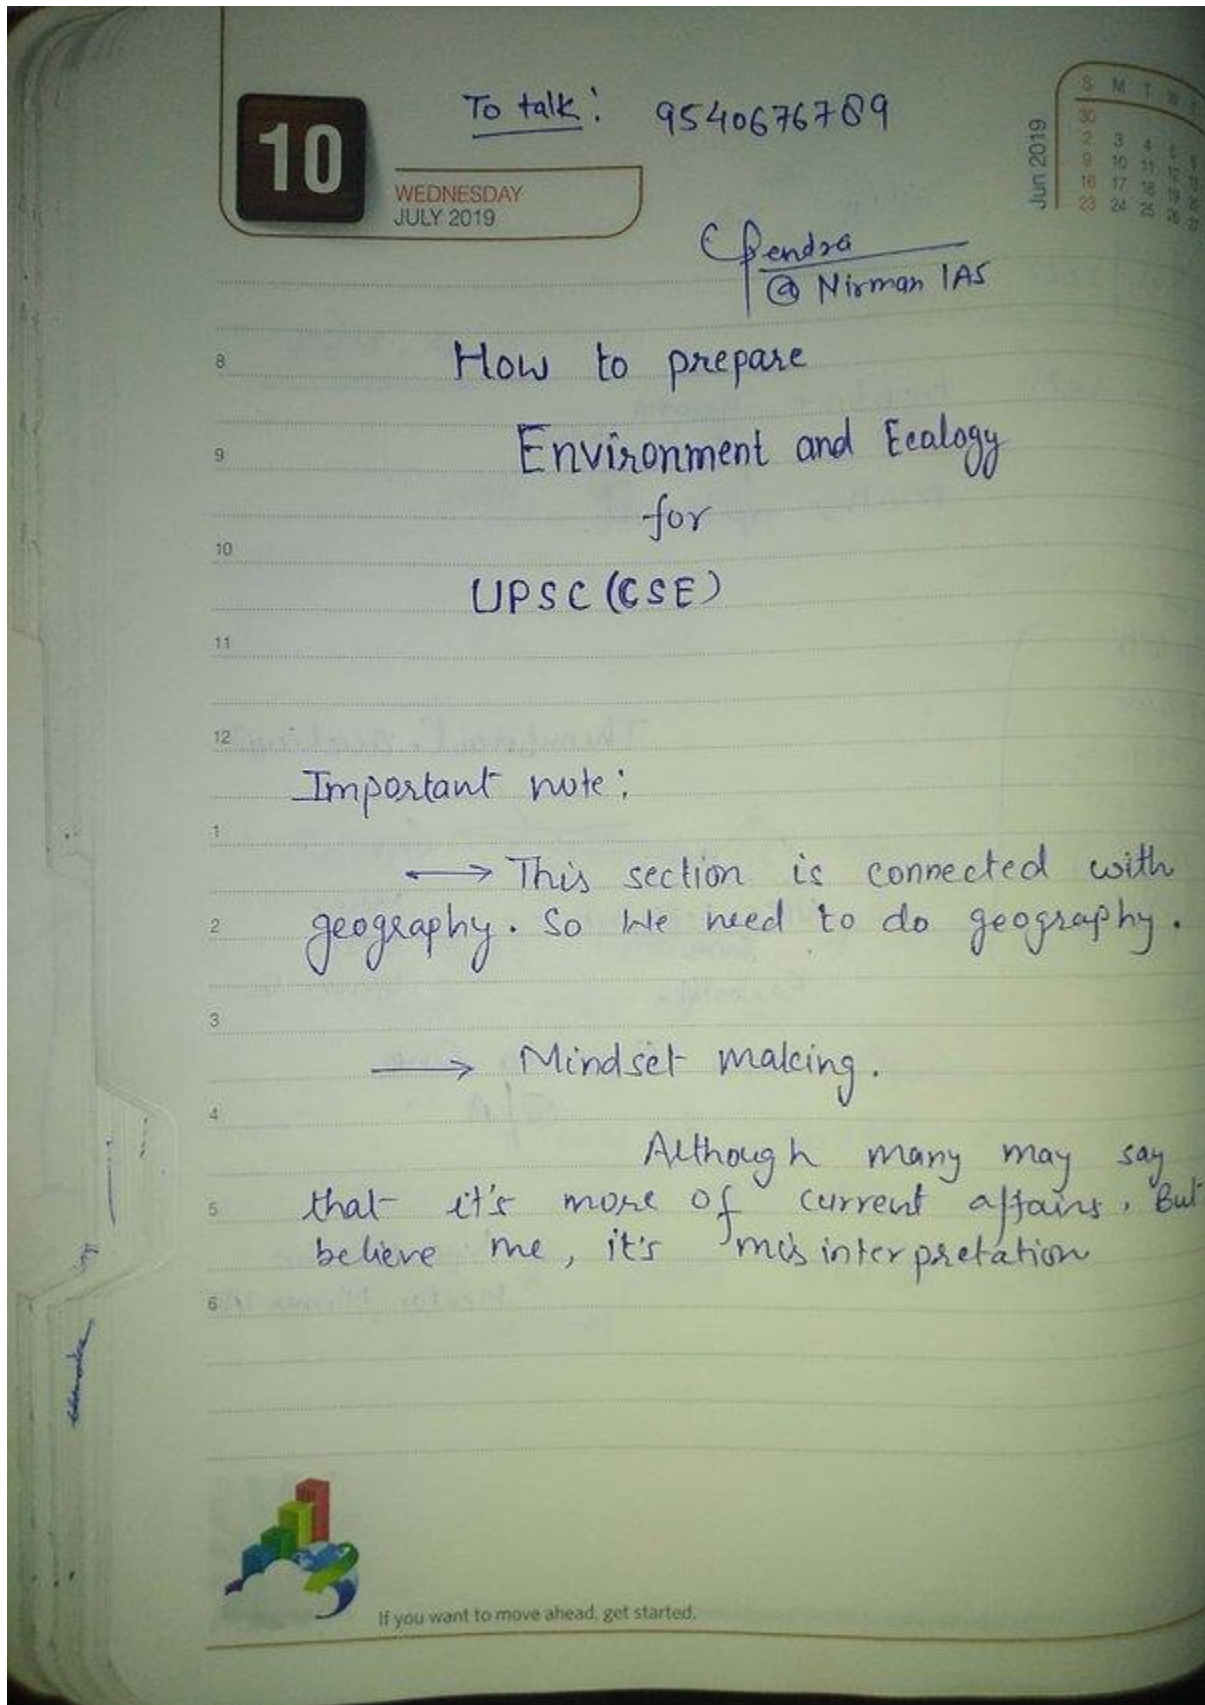 To talk: 9540676789
10
WEDNESDAY
JULY 2019
Jun 2019
S M T W T
30
2 3 4 5 6
9 10 11 12 13
16 17 18 19 20
23 24 25 26 27
@ Nirman IAS
8
How to prepare
9
Environment and Ecalogy
for
10
UPSC (CSE)
11
12
Important note:
1
This section is connected with
2
geography. So We need to do geography.
3
→ Mindset making.
4
Although many may say
5
that it's more of current affairs. But
believe me, it's misinterpretation
6
If you want to move ahead, get started.